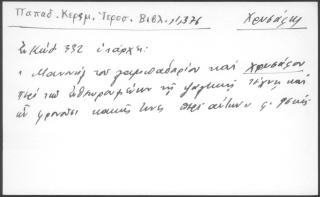 Παπαδ. Κεραμ. Ἱεροσ. Βιβλ. 1, 376 Χρυσάφης
Ἐν Κώδ 332 ὑπάρχει
« Μανουὴλ τοῦ λαμπαδαρίου καὶ Χρυσάφου
περὶ τῶν ἐνθεωρουμένων τῇ ψαλτικῇ τέχνῃ καὶ
ὧν φρονοῦσι κακῶς τινες περὶ αὐτῶν